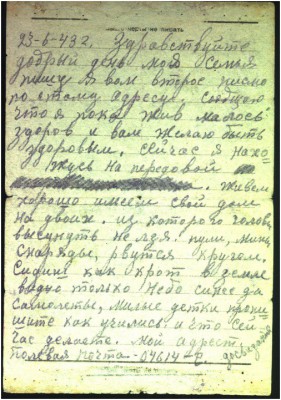 23-6-43г. Здравствуйте
добрый день моя семья
пишу я вам второе писмо
по етому адресу. сообщаю
что я пока жив малось
здоров и вам желаю быть
здоровым. сейчас я нахо
жусь на передовой
живем
хорошо имеем свой дом
на двоих. из которого голову
высунуть не лзя. пули, мины
снаряды, рвутся кругом.
Сидим как крот в земле
видно только небо синее да
самолеты, милые детки пропи
шите как учились. и что сей
час делаете. мой адрест
полевая почта - 07614-р. досвидания